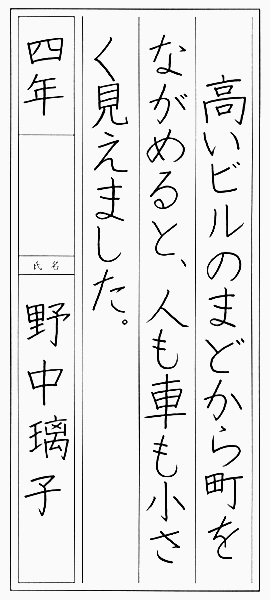 高いビルのまどから町を
ながめると、人も車も小さ
く見えました。
四年
氏名
野中璃子